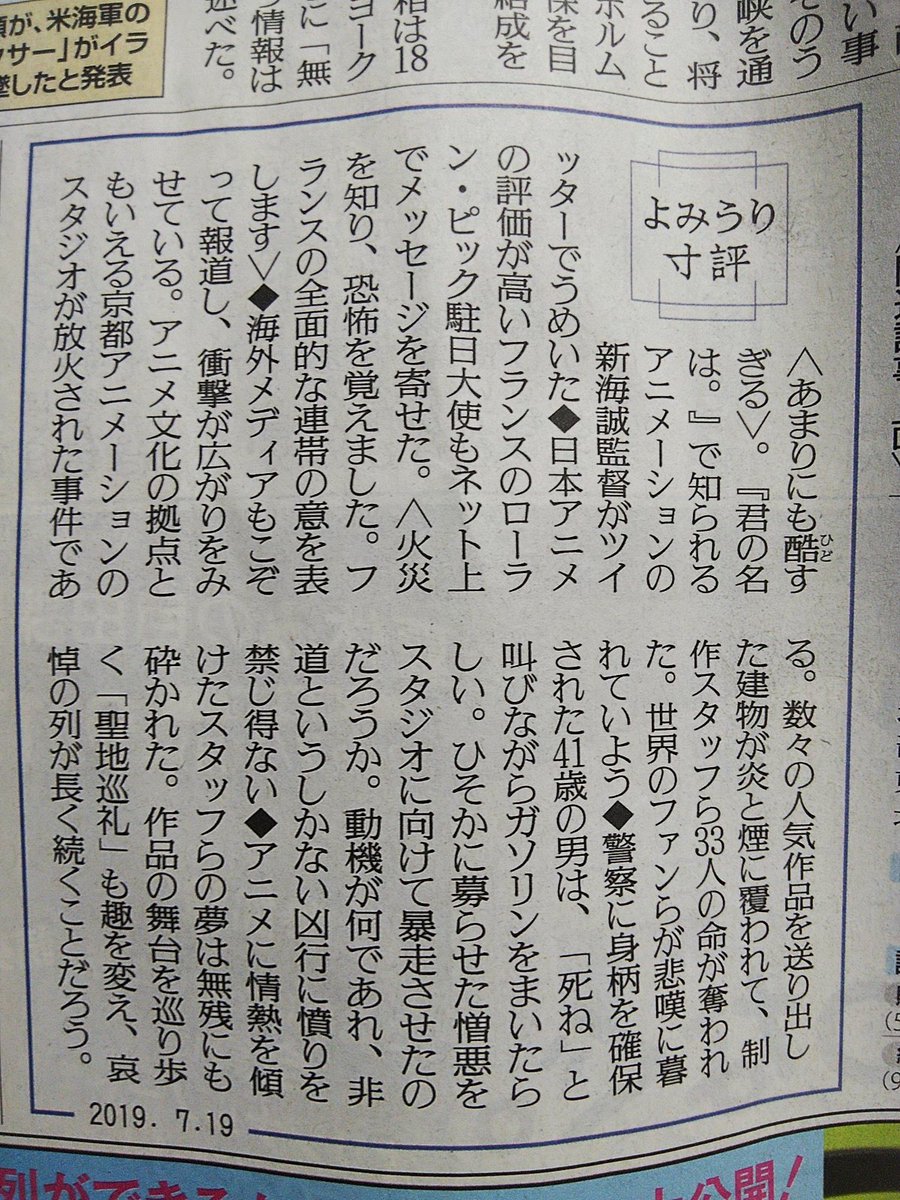 い事
そのう
峡を通
り、将
ること
ホルム
保を目
結成を
ヨーク
相は18
に「無
情報は
述べた。
が、米海軍の
サー」がイラ
墜したと発表
よみうり
寸評
〈あまりにも酷す
ひど
ぎる〉。『君の名
は。』で知られる
アニメーションの
新海誠監督がツイ
ッターでうめいた◆日本アニメ
の評価が高いフランスのローラ
ン・ピック駐日大使もネット上
でメッセージを寄せた。〈火災
を知り、恐怖を覚えました。フ
ランスの全面的な連帯の意を表
します〉◆海外メディアもこぞ
って報道し、衝撃が広がりをみ
せている。アニメ文化の拠点と
もいえる京都アニメーションの
スタジオが放火された事件であ
る。数々の人気作品を送り出し
た建物が炎と煙に覆われて、制
作スタッフら33人の命が奪われ
た。世界のファンらが悲嘆に暮
れていよう◆警察に身柄を確保
された41歳の男は、「死ね」と
叫びながらガソリンをまいたら
しい。ひそかに募らせた憎悪を
スタジオに向けて暴走させたの
だろうか。動機が何であれ、非
道というしかない凶行に憤りを
禁じ得ない◆アニメに情熱を傾
けたスタッフらの夢は無残にも
砕かれた。作品の舞台を巡り歩
く「聖地巡礼」も趣を変え、哀
悼の列が長く続くことだろう。
2019. 7.19
列ができる
公開!